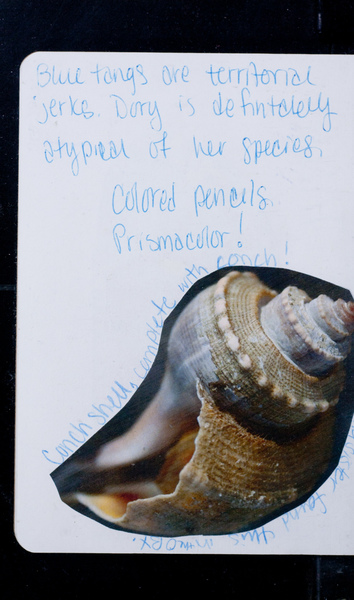 Blue tangs are territorial
jerks. Dory is defintalely
atypical of her species.
Colored pencils.
Prismacolor!
Conch shell, complete with conch!
found this in the